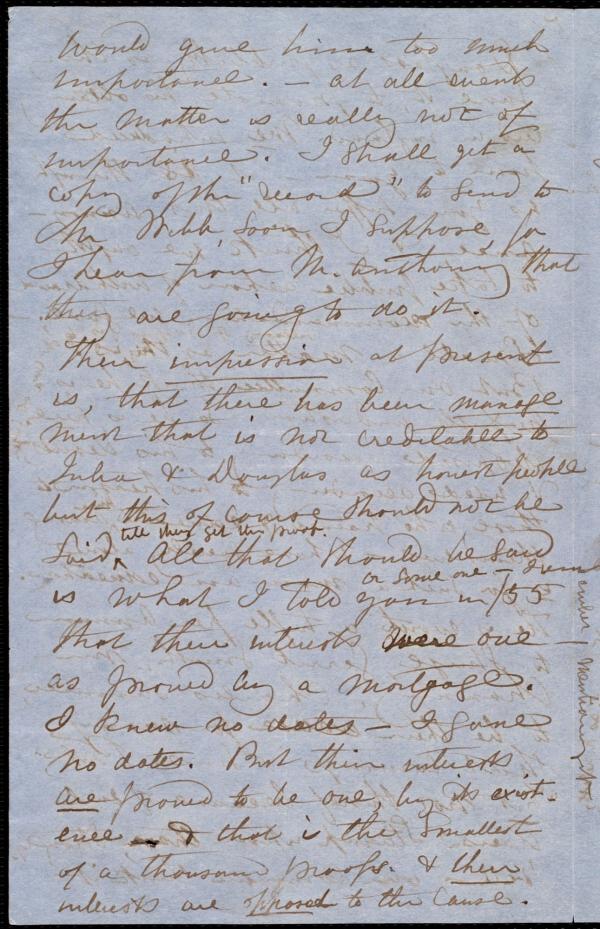 would give him too much
importance. — at all events
the matter is really not of
importance. I shall get a
copy of the "record" to send to
Mr Webb, soon, I suppose, for
I hear from M. Anthony that
they are going to do it.
Their impression at present
is, that there has been manage
ment that is not creditable to
Julia & Douglas as honest people
but this of course should not be
till they get the proof.
said, All that should be said
or some one — I rem
is what I told you in /55
ember mentioning it
that their interests were one —
as proved by a mortgage.
I knew no dates — I gave
no dates. But their interests
are proved to be one, by its exist-
ence — & that is the smallest
of a thousand proofs. & their
interests are opposed to the cause.